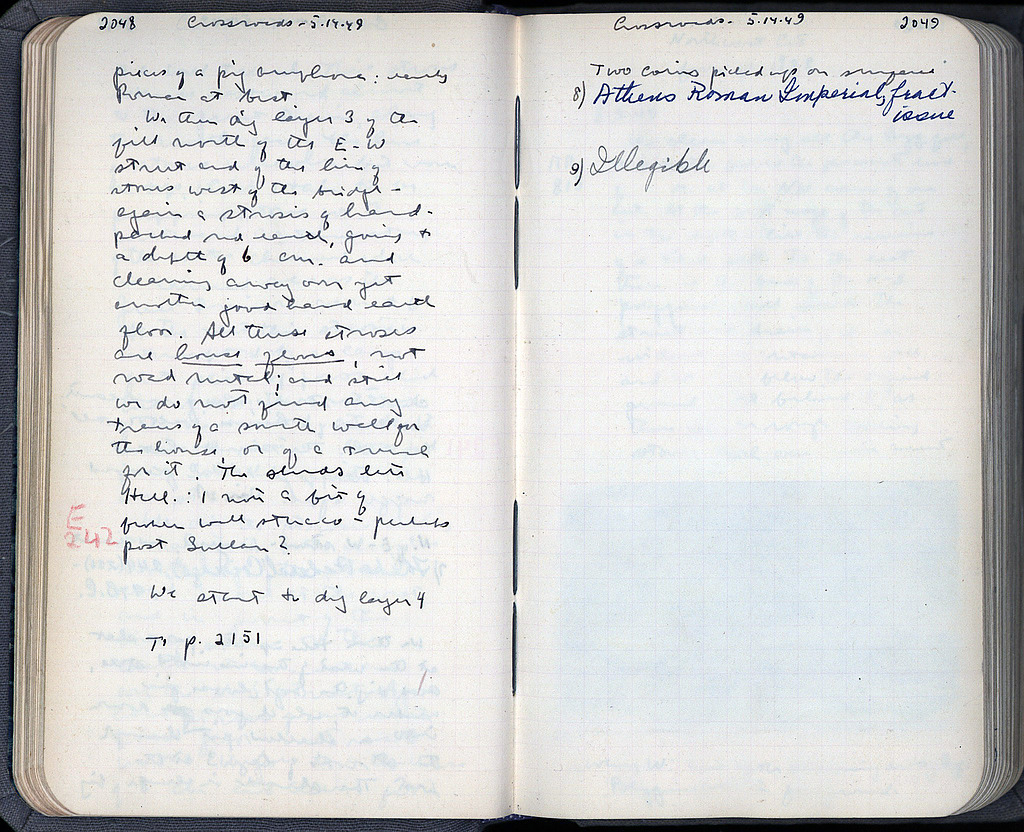 2048 Crossroads - 5.14.49
pieces of a big amphora: early
Roman at best.
We then dig layer 3 of the
fill north of the E-W
street and of the line of
stones west of the bridge -
again a strosis of hard-
packed red earth, going to
a depth of 6 cm. and
cleaning away over yet
another good hard earth
floor. All these stroses
are house floors, not
road metal; and still
we do not find any
trace of a south wall for
the house, or of a trench
for it. The sherds late
Hell.: I note a bit of
broken wall stucco - perhaps
post Sullan?
E
242
We start to dig layer 4
To p. 2151
Crossroads - 5.14.49 2049
Two coins picked up on surface
8) Athens Roman Imperial, fract.
issue
9) Illegible